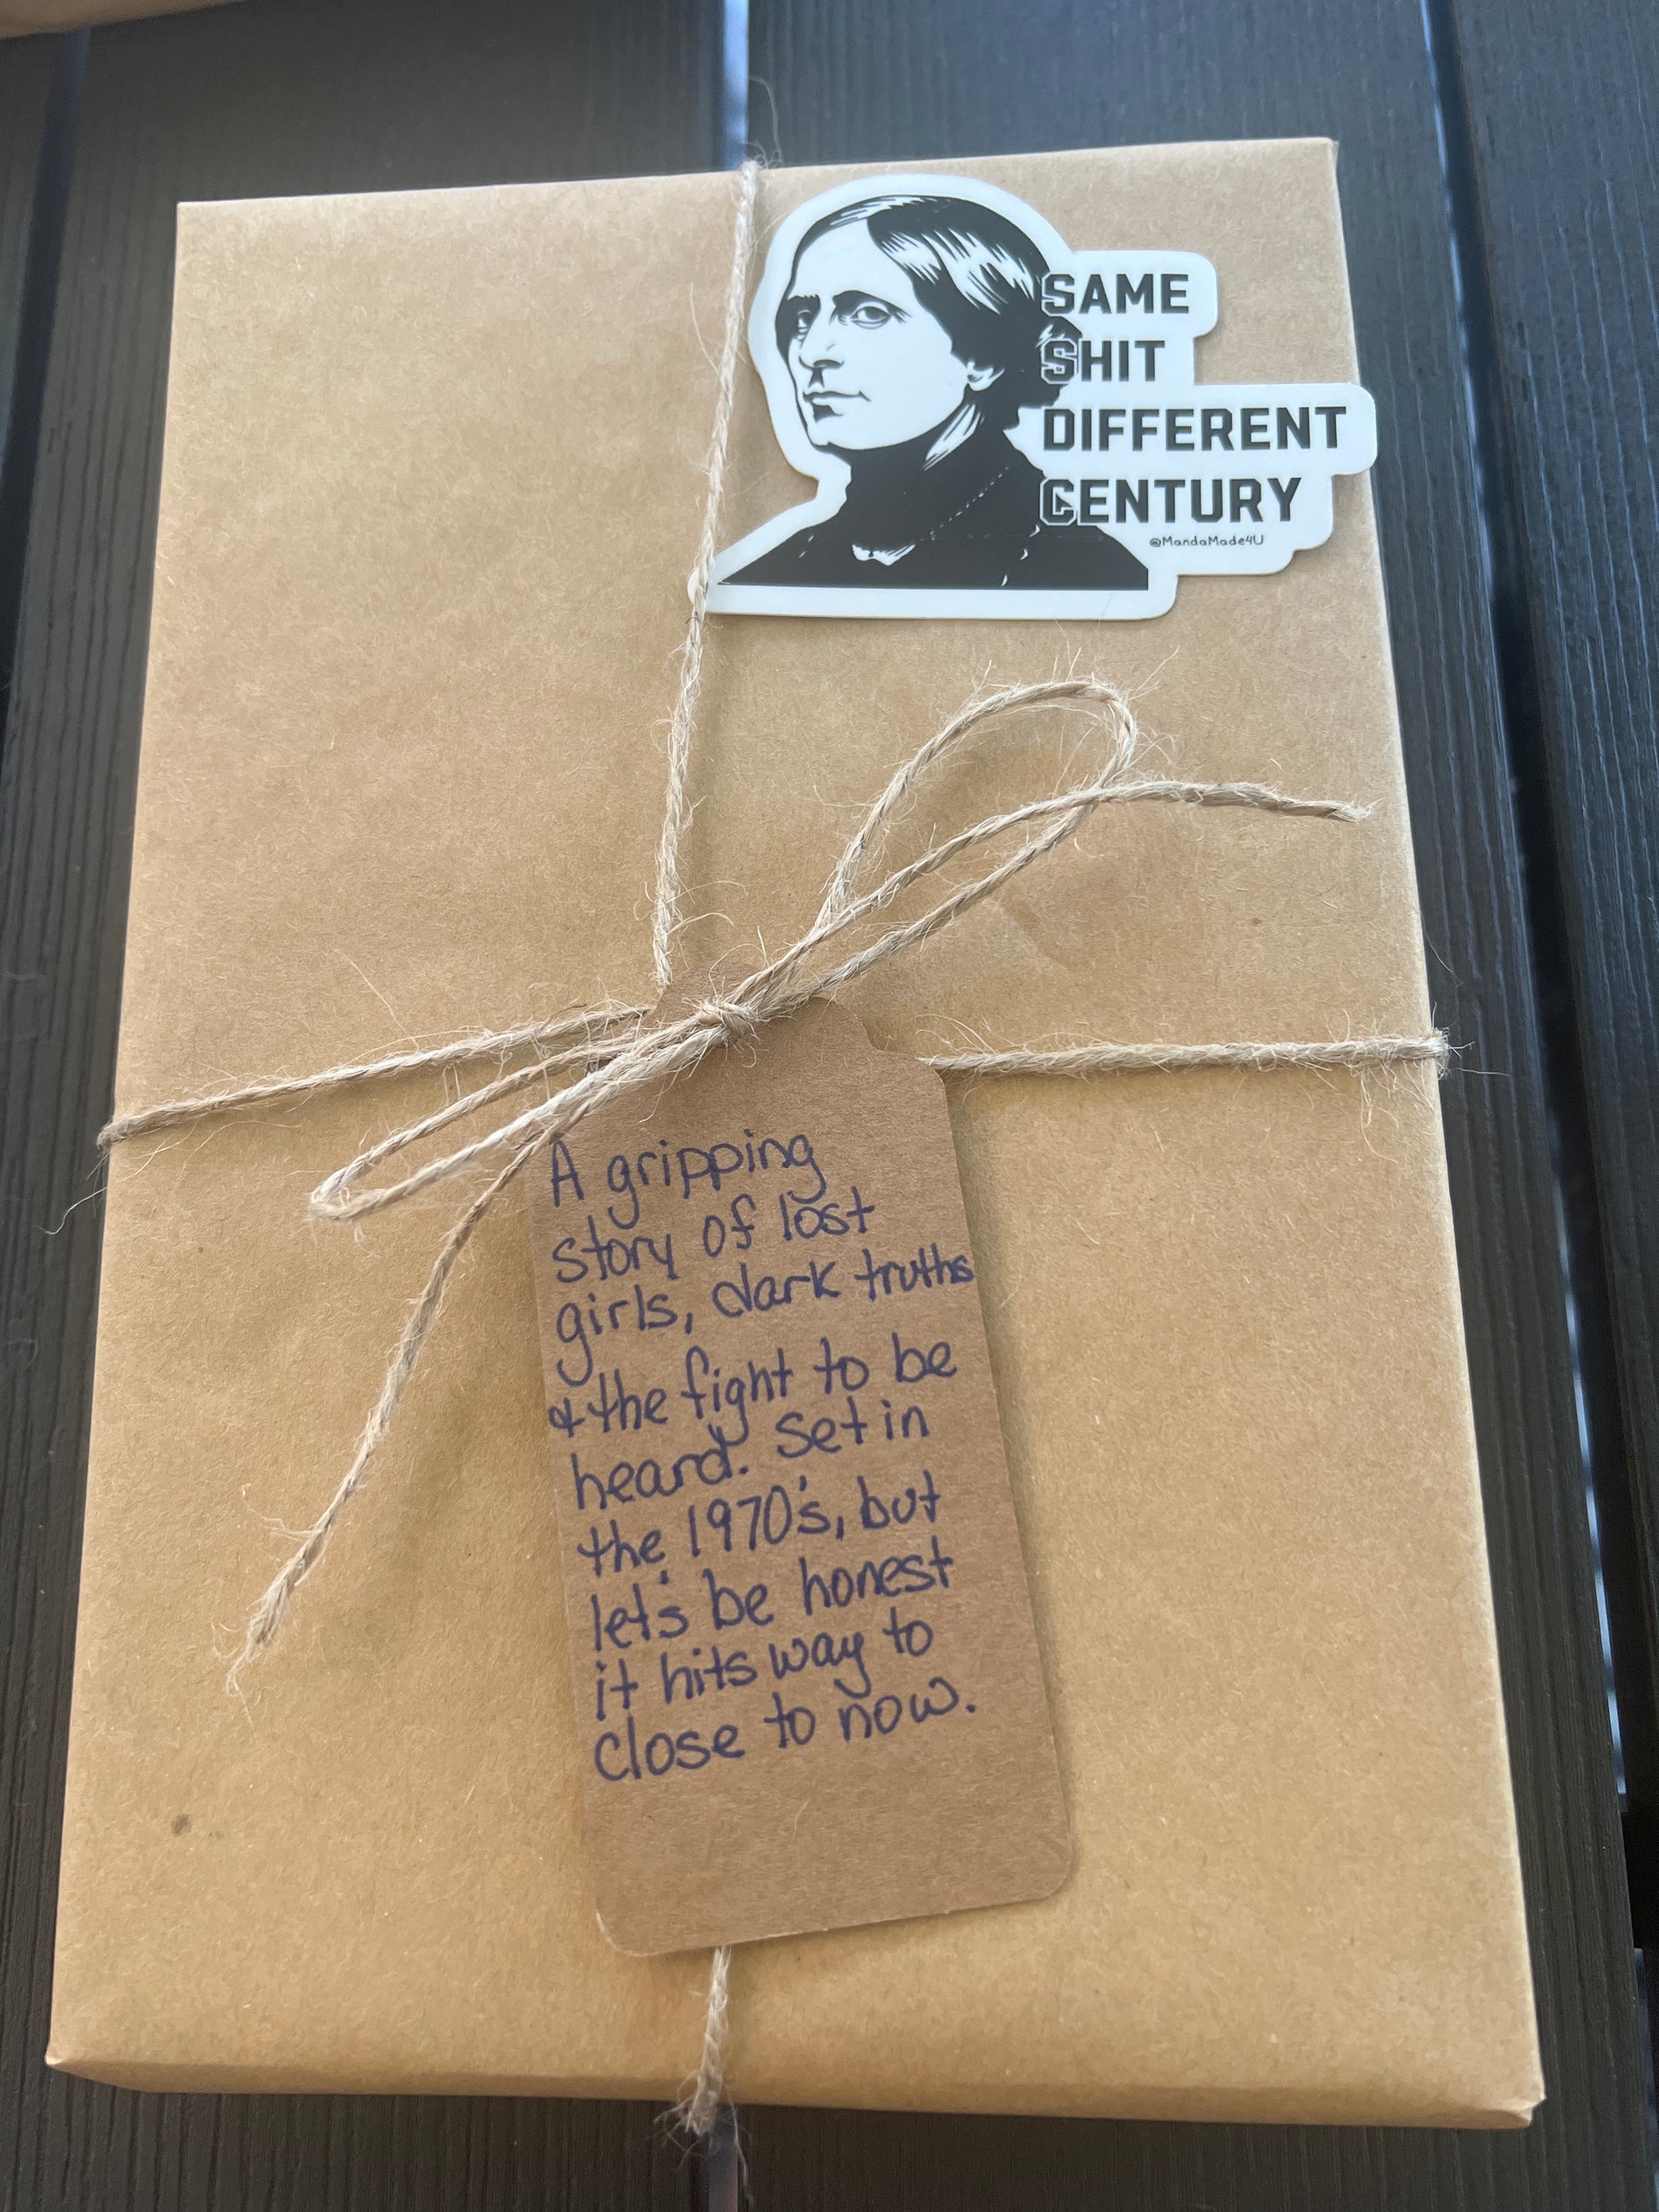 SAME
SHIT
DIFFERENT
CENTURY
@MandaMade4U
A gripping
story of lost
girls, dark truths
& the fight to be
heard. Set in
the 1970's, but
let's be honest
it hits way to
close to now.